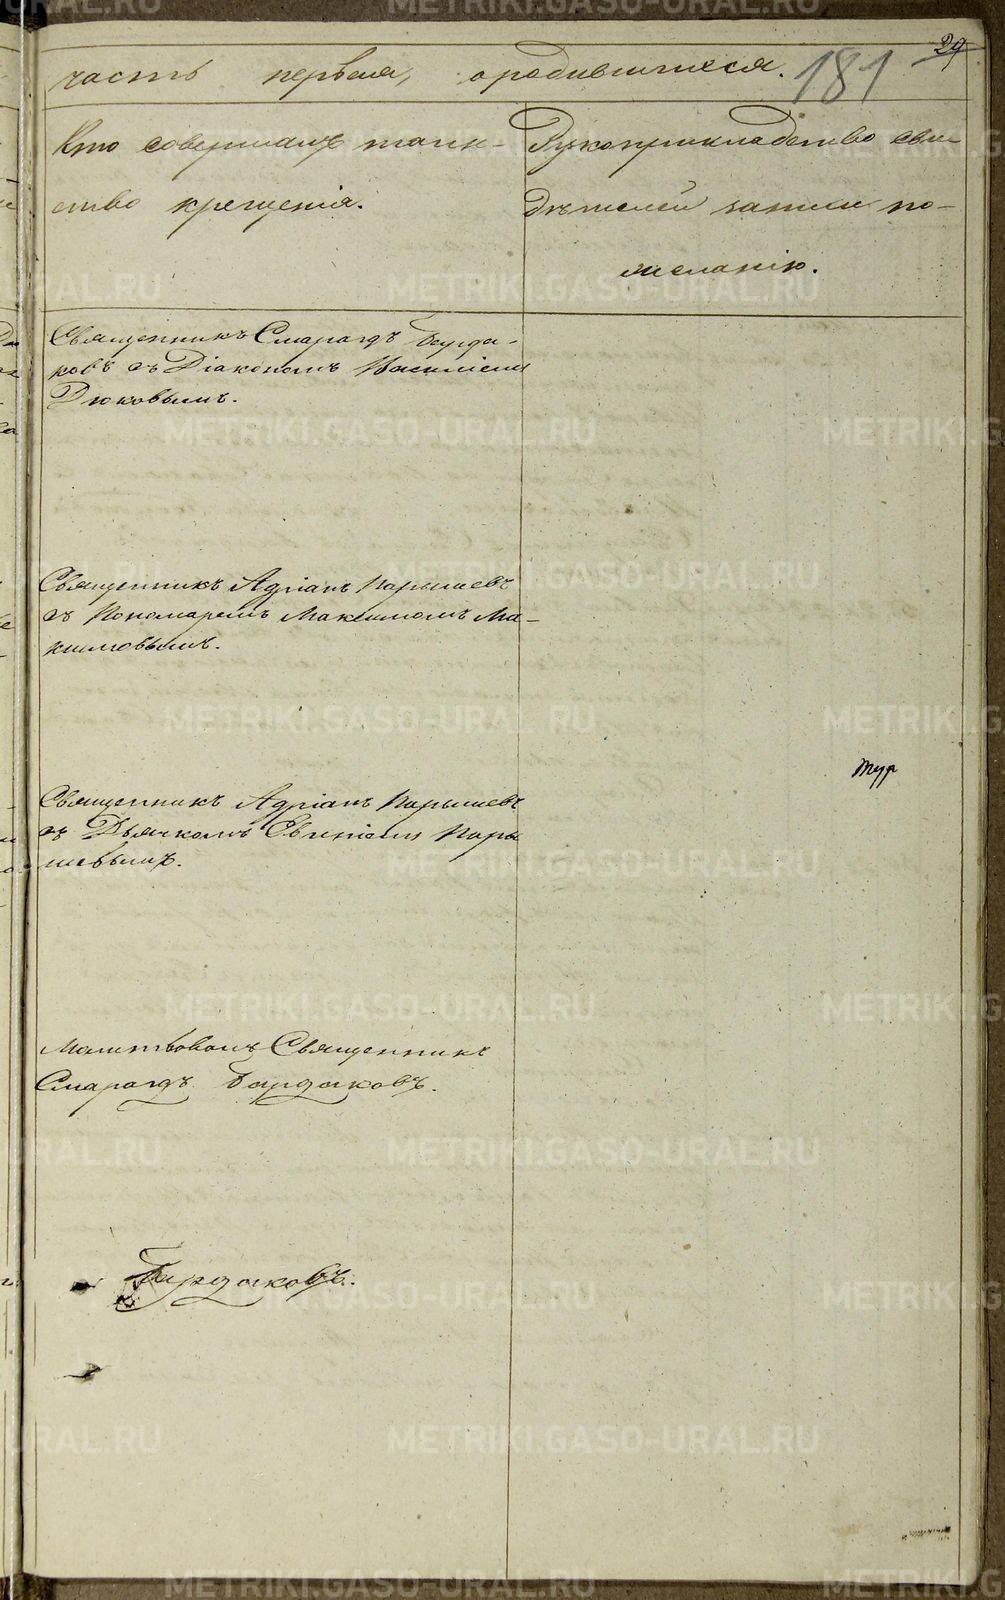 29
181
часть первая, о родившихся.
Кто совершалъ таин-
ство крещенія.
Рукоприкладство сви
дѣтелей записи по-
желанію.
Священникъ Смарагдъ Бурда-
ковъ съ Діакономъ Василіемъ
Дюковымъ.
Священникъ Адріанъ Парышевъ
съ Пономаремъ Максимомъ Ма-
кшмовымъ.
Священникъ Адріанъ Парышевъ
съ Дьячкомъ Евгеніемъ Пары
шевымъ.
Молитвовалъ Священникъ
Смарагдъ Бурдаковъ.
Бурдаковъ.
METRIKI.GASO-URAL.RU